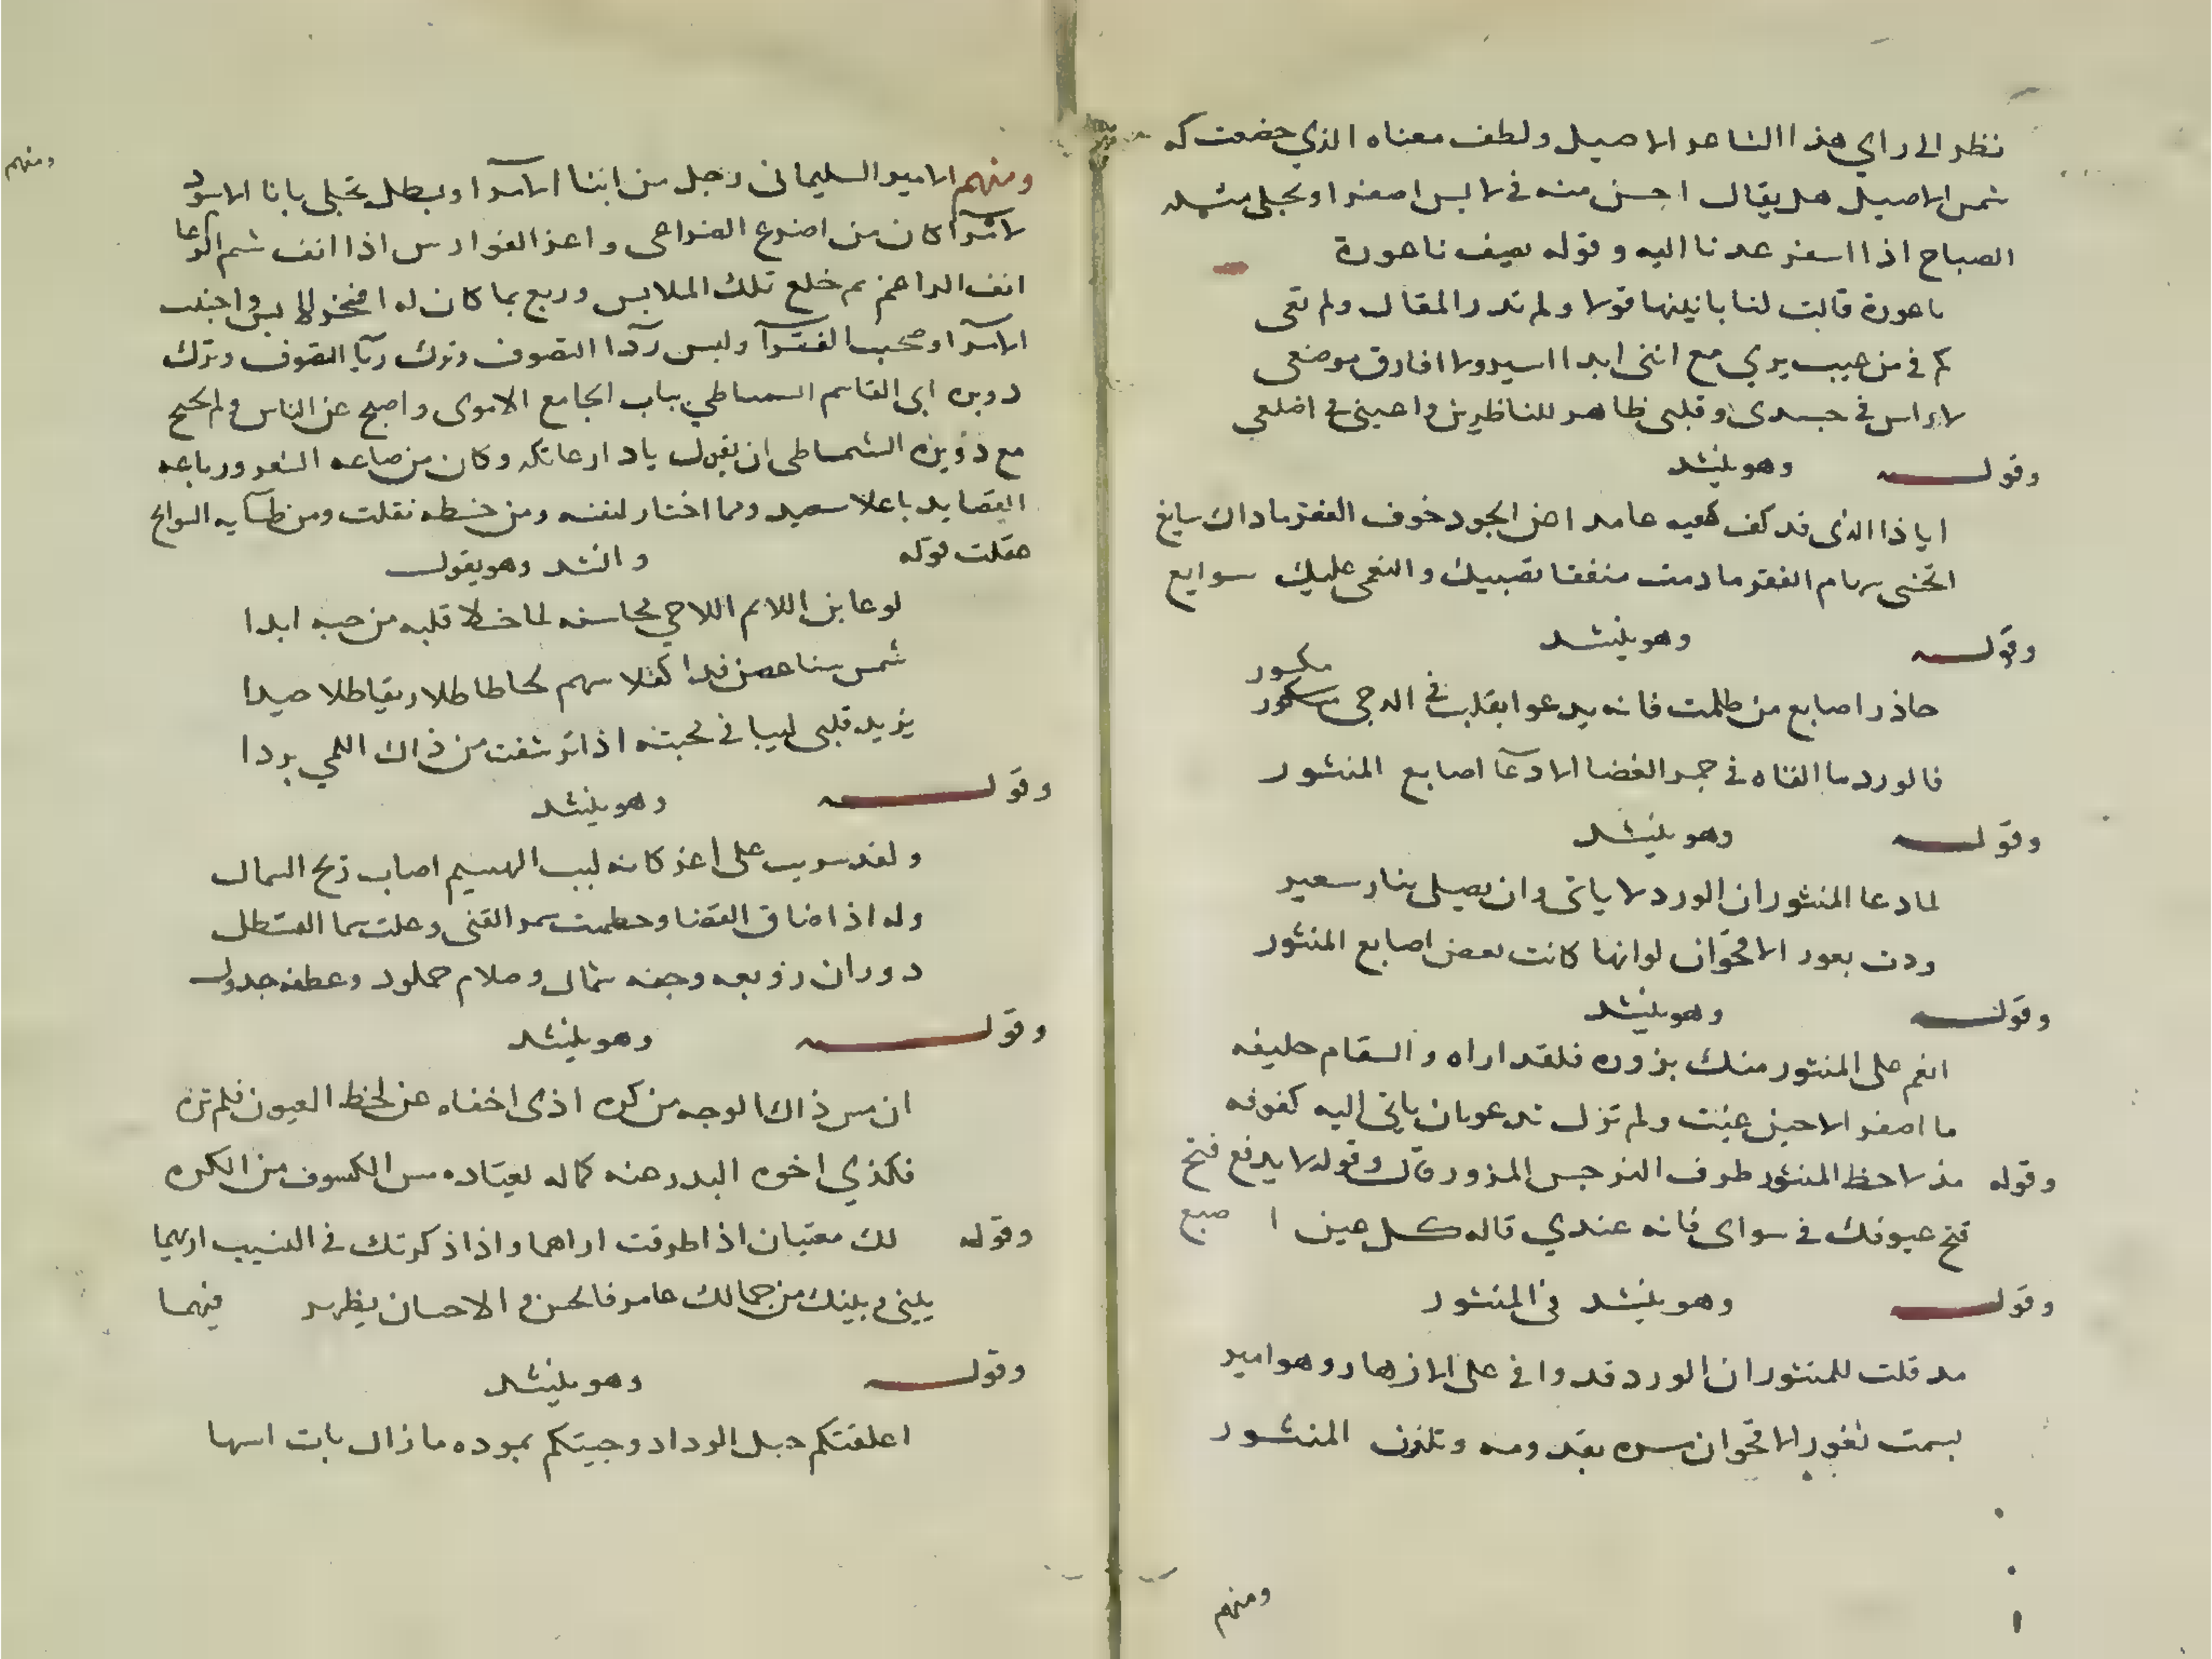 نظر الى راي هذا الشاعر الاصيل ولطف معناه الذي خضعت له
شمس الاصيل هل يقال احسن منه في لابس اصفر او تجلى مثله
الصباح اذا اسفر عدنا اليه وقوله يصف ناعورة
ناعورة قالت لنا بانينها قولا ولم تدر المقال ولم تعى
كم في من عيب يرى مع اننى ابدا اسير ولا افارق موضعى
لا راس في جسدى وقلبى ظاهر للناظرين واعينى في اضلعى
وقوله وهو ينشد
ايا ذا الذى قد كف كفيه عامدا عن الجود خوف الفقر ما ذاك سايغ
اتخشى سهام الفقر ما دمت منفقا تصيبك والنعمى عليك سوابغ
وقوله وهو ينشد
مكسور
حاذر اصابع من ظلمت فانه يدعو ابقلب في الدجى مكسور
فالورد ما القاه في جمر الغضا الا دعآ اصابع المنثور
وقوله وهو ينشد
لما دعا المنثور ان الورد لا ياتى وان يصلى بنار سعير
ودت بعور الاقحوان لو انها كانت بعض اصابع المنثور
وقوله وهو ينشد
انعم على المنثور منك بزوره فلقد اراه والسقام حليفه
ما اصفر الا حين غبت ولم تزل تدعو بان ياتى اليه كفوفه
وقوله مذ لاحظ المنثور طرف النرجس المزور قال وقوله لا يدفع فتح
فتح عيونك في سواى فانه عندي قاله كل عين ا صبع
وقوله وهو ينشد في المنثور
مد قلت للمنثور ان الورد قد وافى على الازهار وهو امير
بسمت ثغور الاقحوان مسره بقدومه وتلون المنثور
ومنهم
ومنهم
ومنهم الامير السليمانى رجل من ابنا الامرآ وبطل تجلى بانا الاسود
لا مرآ كان من اضرع الضراعى واعز الفوارس اذا انف شم الوعا
انف الراعم ثم خلع تلك الملابس وربع بما كان له افخر لابس واجتنب
الامرآ وصحب الفقرآ ولبس ردآ التصوف وترك ريآ التصوف ونزل
دويره ابى القاسم السمساطي بباب الجامع الاموى واصبح عن الناس ولم يحتج
مع دؤيره الشمساطى ان يقول يا دار عاتكه وكان من صاعه الشعر ورباعه
القصايد باعلا سعيد ومما اختار لنفسه ومن خطه نقلت ومن
عقلت قوله وانشد وهو يقول
لو عاين اللائم اللاحي محاسنه لما خلا قلبه من حبه ابدا
شمس سنا غصن قدا كفلا سهم لحاظا طلا ريقا طلا صيدا
يزيد قلبى لهيبا في محبته اذا ترشفت من ذاك اللمي بردا
وقوله وهو ينشد
ولقد سريت على اغر كانه لبب الهشيم اصاب ريح الشمال
وله اذا ضاق الفضا وحطمت سمر القنى وعلت سما القسطل
دوران زوبعه وجفه شمال وصلام جملود وعطفه جدول
وقوله وهو ينشد
ان مس ذاك الوجه من كره اذى اخفاه عن لحظ العيون فلم تره
فكذي اخوه البدر عنه كماله يعتاده مس الكسوف من الكره
وقوله لك معتبان اذا طرقت اراهما واذا ذكرتك في النسيب اريهما
بينى وبينك من جمالك عامر فالحسن والاحسان يظهر فيهما
وقوله وهو ينشد
اعلقتكم حبل الوداد وجيتكم بموده ما زال بات اسها